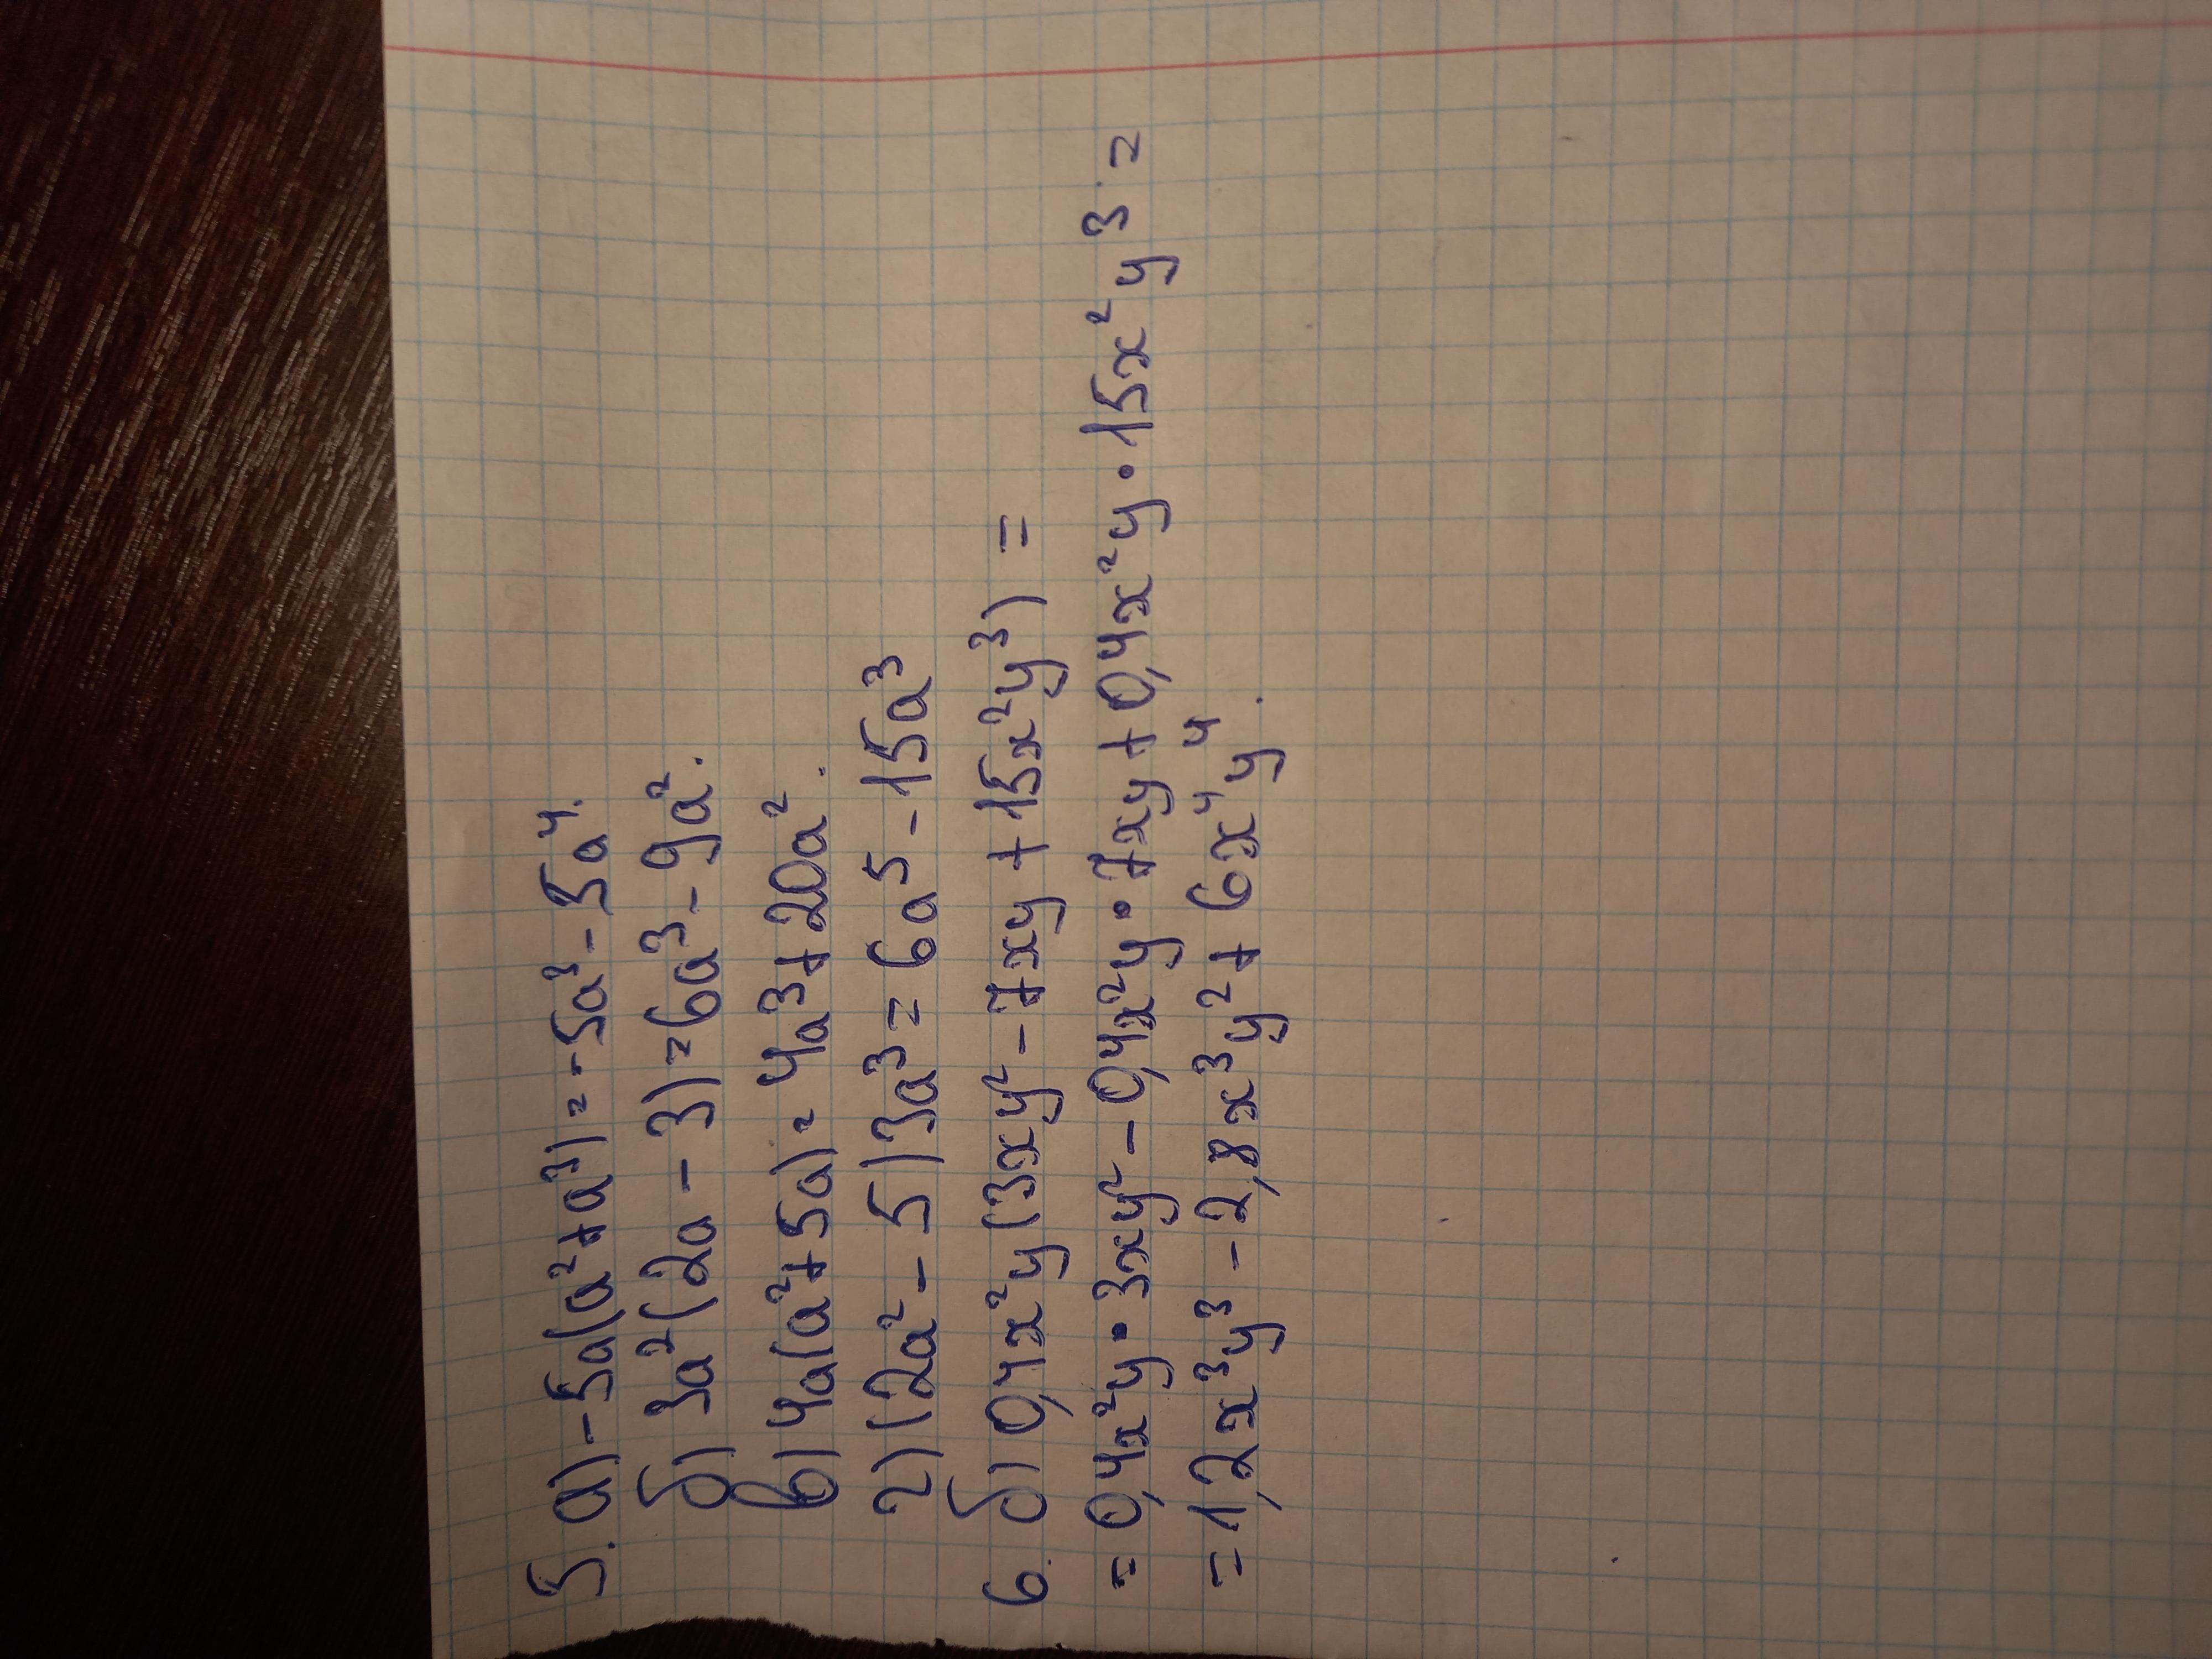 5. а) -5a(a²+a³)=-5a³-5a⁴.
б) 3a²(2a-3)=6a³-9a².
в) 4a(a²+5a)=4a³+20a².
г) (2a²-5)3a³=6a⁵-15a³
6. б) 0,4x²y(3xy²-7xy+15x²y³)=
=0,4x²y•3xy²-0,4x²y•7xy+0,4x²y•15x²y³=
=1,2x³y³-2,8x³y²+6x⁴y⁴.